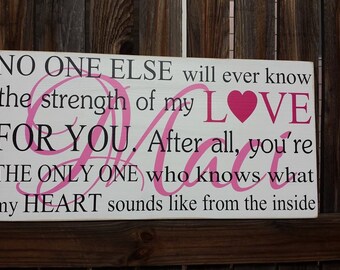 NO ONE ELSE will ever know
the strength of my L♥VE
FOR YOU. After all, you're
THE ONLY ONE who knows what
my HEART sounds like from the inside
Maci